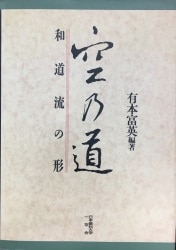 空乃道
和道流の形
有本富英編著